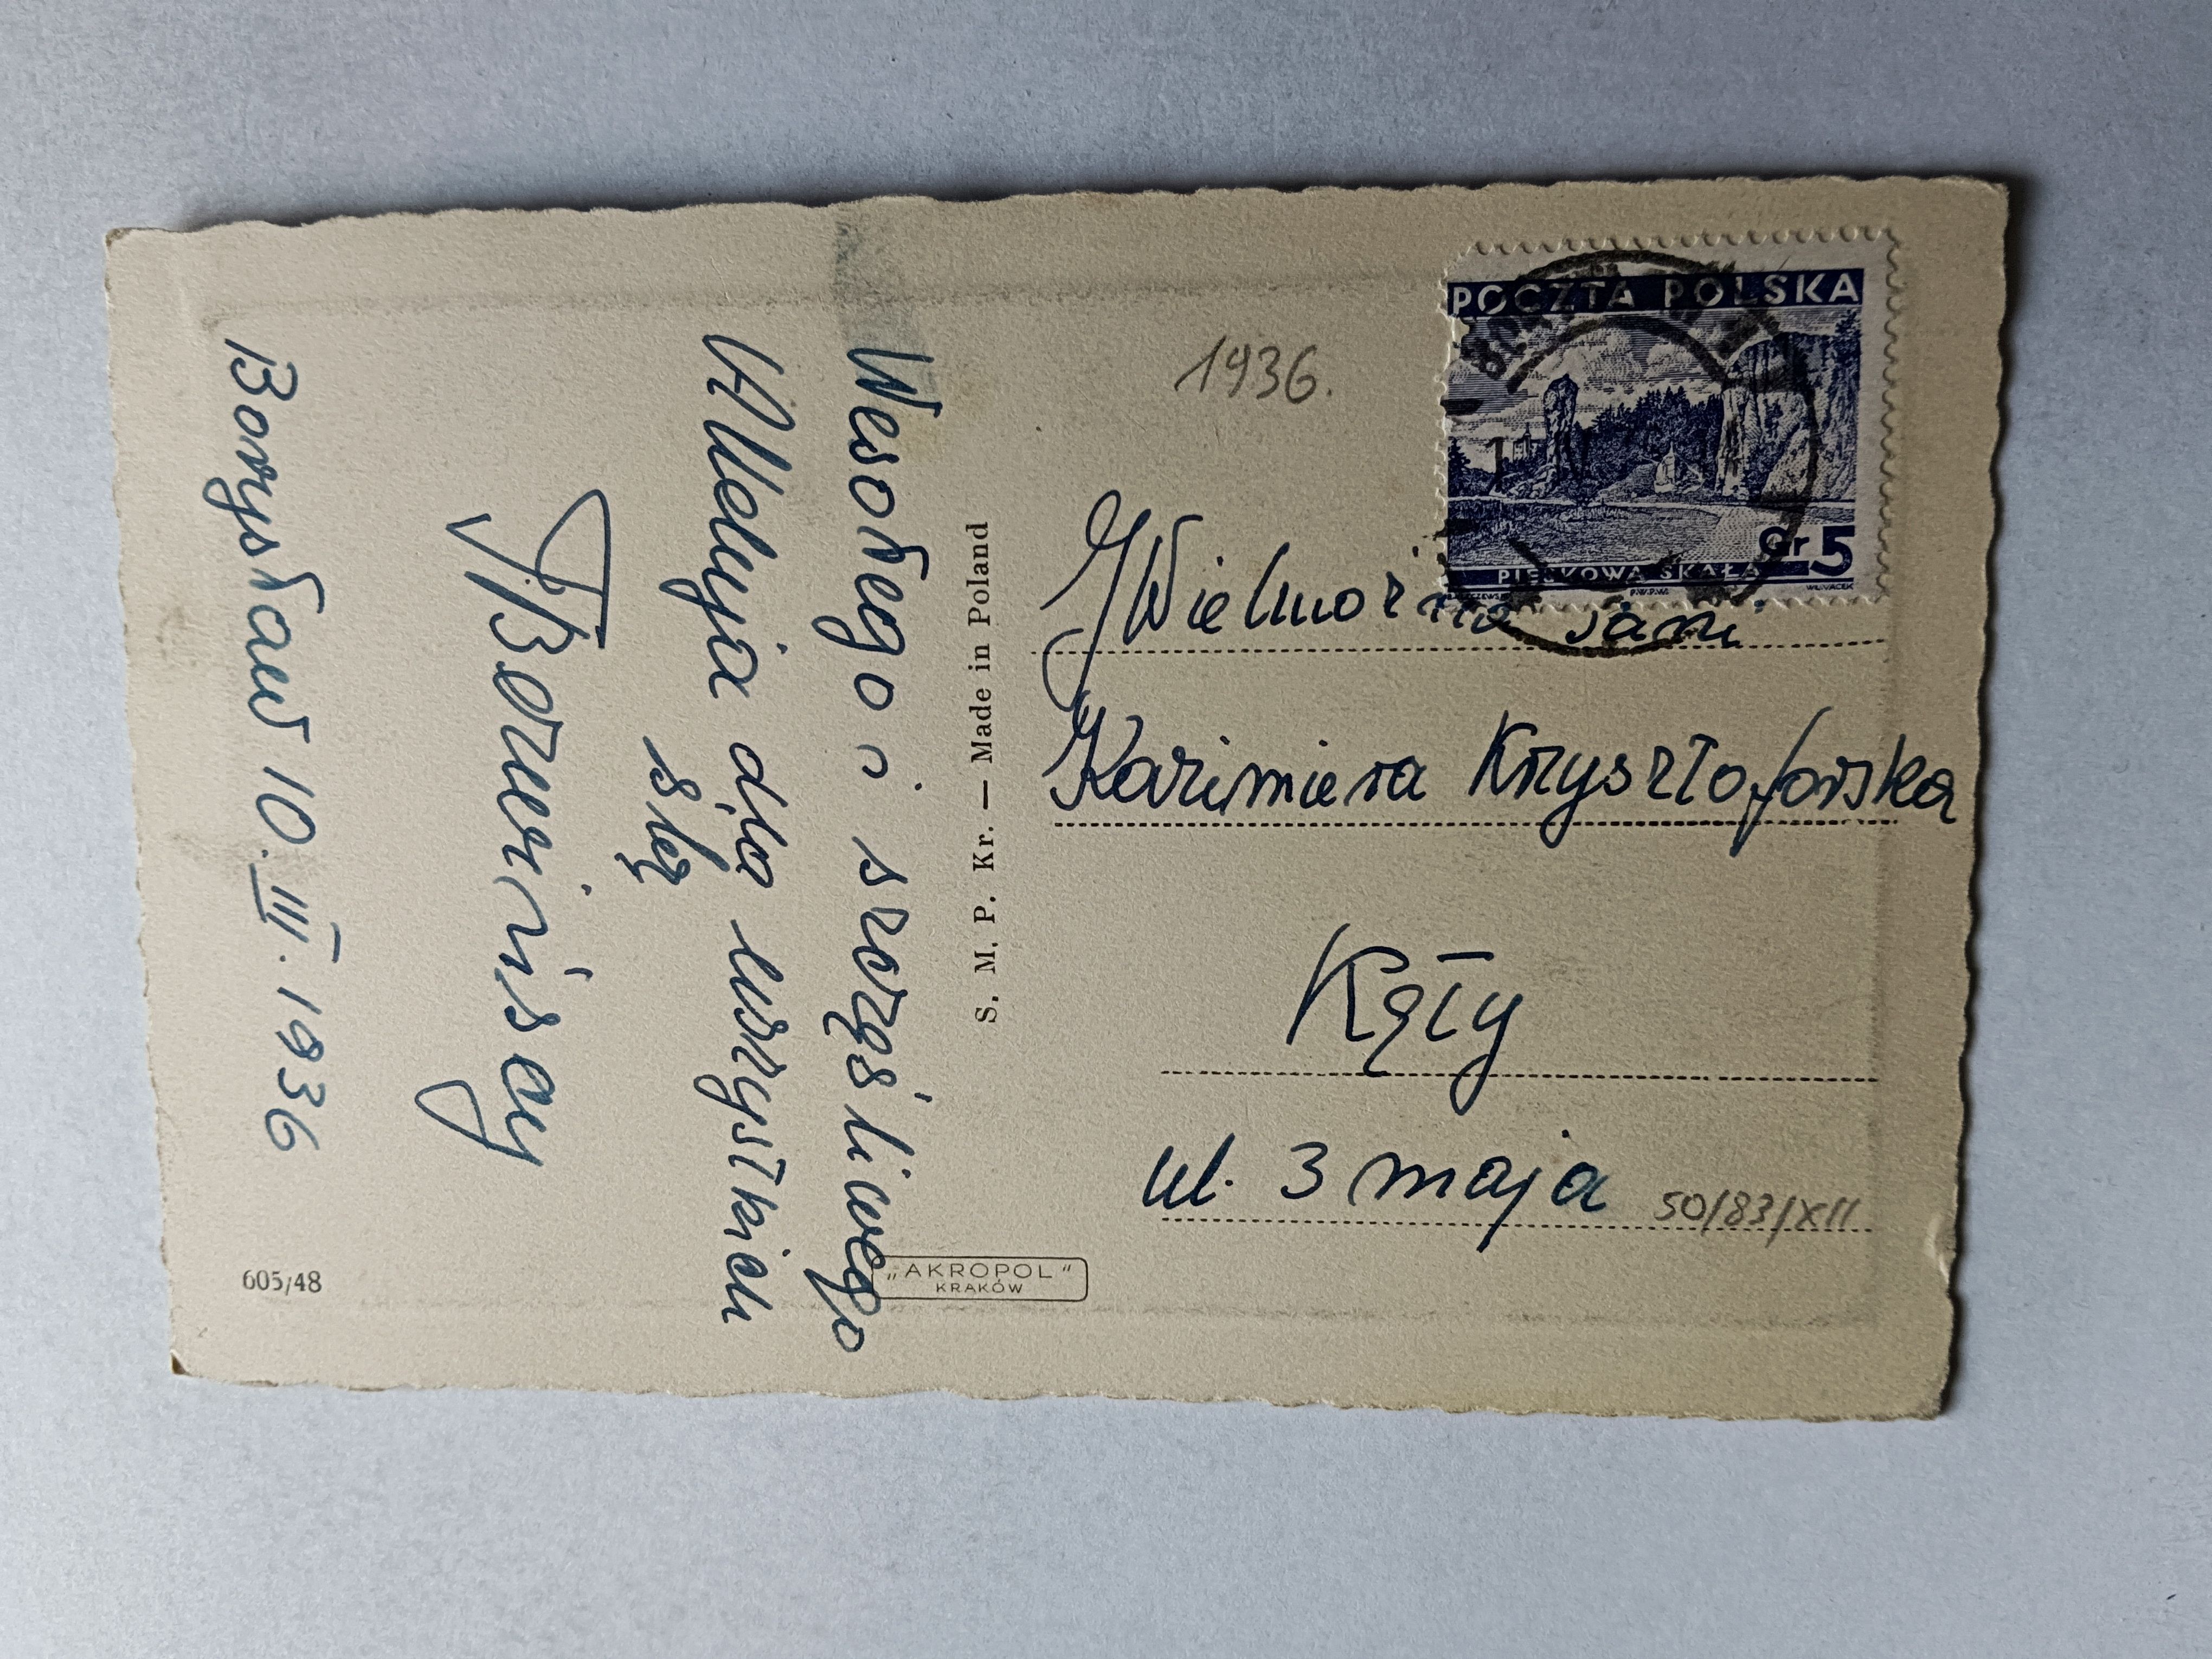 Wesołego i szczęśliwego
Alleluja dla wszystkich
ślą
Borysław 10.III.1936
605/48
S. M. P. Kr. — Made in Poland
„AKROPOL"
KRAKÓW
1936.
POCZTA POLSKA
Gr 5
PIESKOWA SKAŁA
W.VACEK
JWielmożna Pani
Kazimiera Krysztoforska
Kęty
ul. 3 maja
50/83/XII